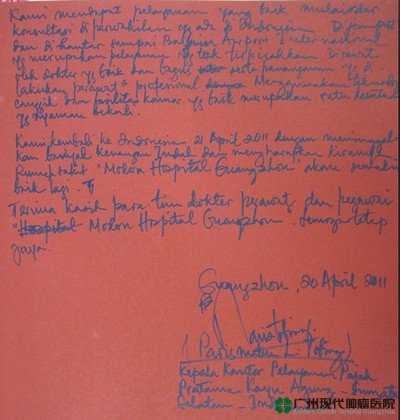 Kami mendapat pelayanan yang baik mulai dar
konsultasi di perwakilan yg ada di Indonesia. Dijemput
dan di hantar sampai Baiyun Airport International
yg merupakan pelayanan yg tak terpisahkan. Dirawat
oleh dokter yg baik dan serta penanganan yg di
lakukan perawat profesional menggunakan teknologi
canggih dan fasilitas kamar yg baik merupakan satu
yg nyaman
Kami kembali ke Indonesia 21 April 2011 dengan meninggal
kan banyak kenangan indah dan mengharapkan kiranya
Rumah sakit "Modern Hospital Guangzhou" akan semakin
baik lagi.
Terima kasih para tim dokter perawat dan pegawai
"Modern Hospital Guangzhou". Semoga tetap
jaya.
Guangzhou, 20 April 2011
Kepala Kantor Pelayanan Pajak
Pratama Kayu Agung - Sumatera
Selatan - Indonesia
广州现代肿瘤医院
Modern Cancer Hospital Guangzhou